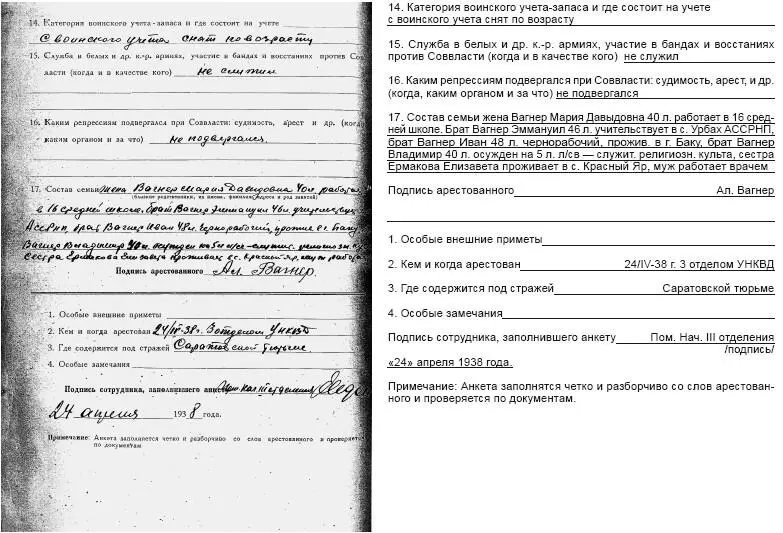 14. Категория воинского учета-запаса и где состоит на учете
с воинского учета снят по возрасту
15. Служба в белых и др. к.-р. армиях, участие в бандах и восстаниях против Сов
власти (когда и в качестве кого) не служил
16. Каким репрессиям подвергался при Соввласти: судимость, арест и др. (когда
каким органом и за что) не подвергался
17. Состав семьи жена Вагнер Мария Давыдовна 40 л. работа
в 16 средней школе. брат Вагнер Эммануил 46 л. учительствует
АССРНП, брат Вагнер Иван 48 л. чернорабочий, прожив. в г. Баку
Вагнер Владимир 40 л. осужден на 5 л. л/св – служит. религиозн. к
сестра Ермакова Елизавета проживает в с. Красный Яр, муж работа
Подпись арестованного Ал. Вагнер.
1. Особые внешние приметы
2. Кем и когда арестован 24/IV-38 г. 3 отделом УНКВД
3. Где содержится под стражей Саратовской тюрьме.
4. Особые замечания
Подпись сотрудника, заполнившего анкету
24 апреля 1938 года.
Примечание: Анкета заполняется четко и разборчиво со слов арестованного и проверяется
по документам
14. Категория воинского учета-запаса и где состоит на учете
с воинского учета снят по возрасту
15. Служба в белых и др. к.-р. армиях, участие в бандах и восстаниях
против Соввласти (когда и в качестве кого) не служил
16. Каким репрессиям подвергался при Соввласти: судимость, арест, и др.
(когда, каким органом и за что) не подвергался
17. Состав семьи жена Вагнер Мария Давыдовна 40 л. работает в 16 сред-
ней школе. Брат Вагнер Эммануил 46 л. учительствует в с. Урбах АССРНП,
брат Вагнер Иван 48 л. чернорабочий, прожив. в г. Баку, брат Вагнер
Владимир 40 л. осужден на 5 л. л/св — служит. религиозн. культа, сестра
Ермакова Елизавета проживает в с. Красный Яр, муж работает врачем
Подпись арестованного Ал. Вагнер
1. Особые внешние приметы
2. Кем и когда арестован 24/IV-38 г. 3 отделом УНКВД
3. Где содержится под стражей Саратовской тюрьме
4. Особые замечания
Подпись сотрудника, заполнившего анкету Пом. Нач. III отделения
/подпись/
«24» апреля 1938 года.
Примечание: Анкета заполнятся четко и разборчиво со слов арестован-
ного и проверяется по документам.